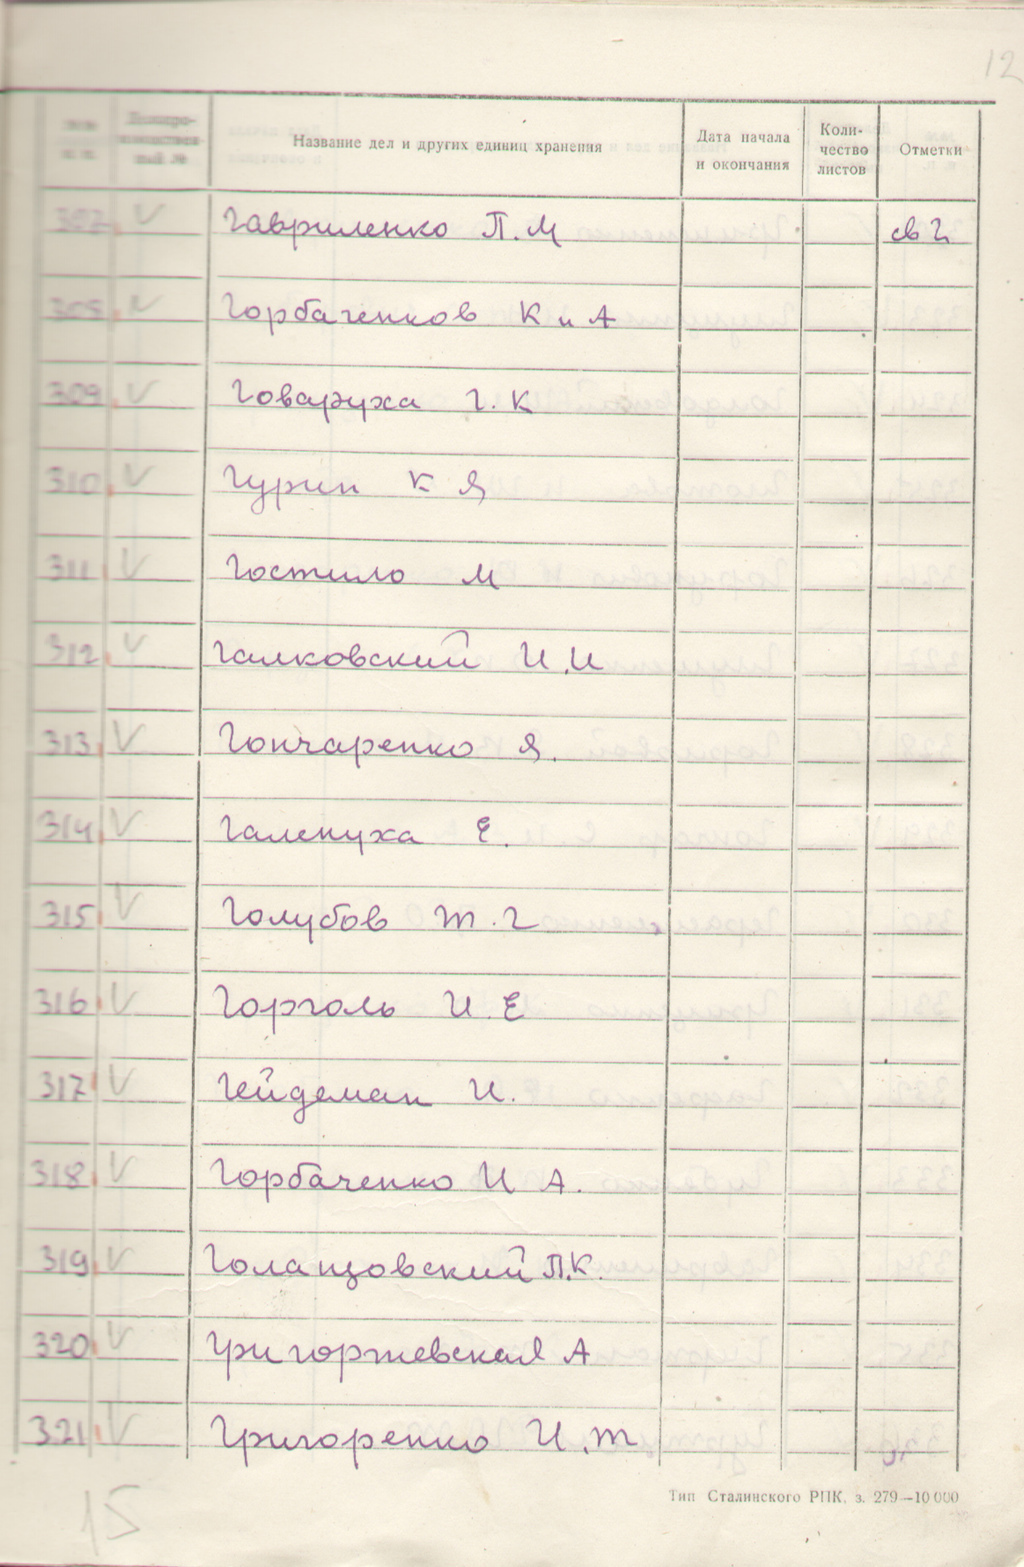 12
№№ п. п. Делопро- изводствен- ный № Название дел и других единиц хранения Дата начала и окончания Коли- чество листов Отметки
307 V Гавриленко П. М св Г
308 V Горбаченков К и А
309 V Говаруха Г. К
310 V Гурин К Я
311 V Гостило М
312 V Галковский И. И
313 V Гончаренко Я.
314 V Галенуха Е.
315 V Голубов Т. Г
316 V Горголь И. Е
317 V Гейдеман И.
318 V Горбаченко И А.
319 V Голанцовский П.К.
320 V Григоржевская А
321 V Григоренко И. Т
Тип Сталинского РПК, з. 279—10 000
15